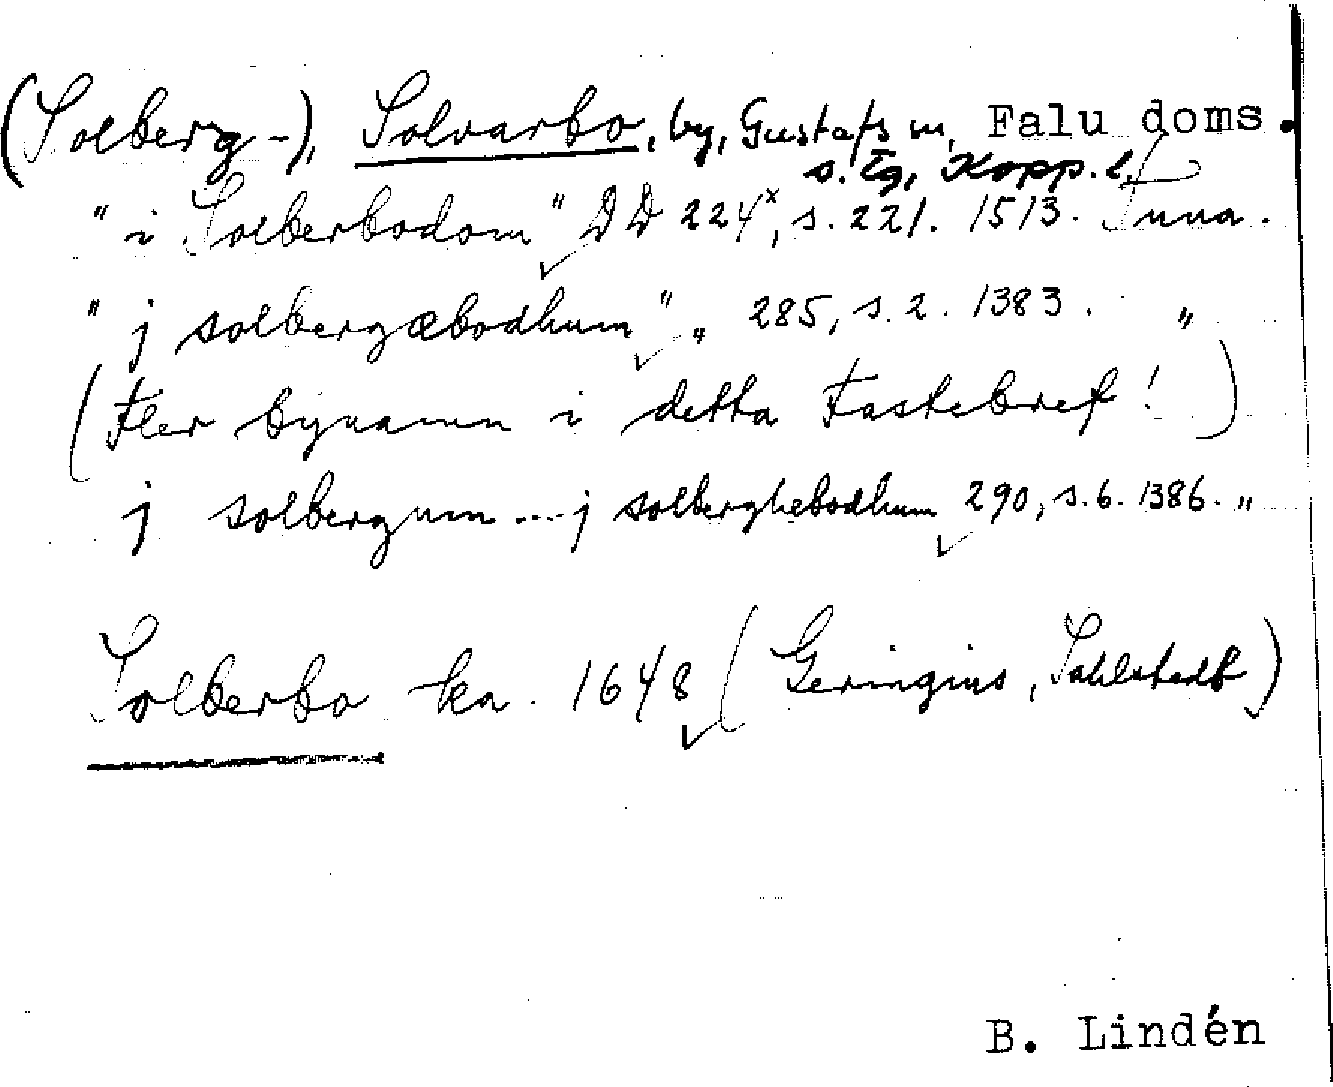 (Solberg-), Solvarbo, by, Gustafs sn, Falu doms.
s. tg, Kopp. l.
" i Solberbodom " DD 224x, s. 221. 1513. Tuna.
" j solbergæbodhum " „ 285, s. 2. 1383. „
(Fler bynamn i detta Fastebref!)
j solbergum ... j solberghebodhum 290, s. 6. 1386. „
Solberbo ka. 1648 (Geringius, Sahlstedt)
B. Lindén